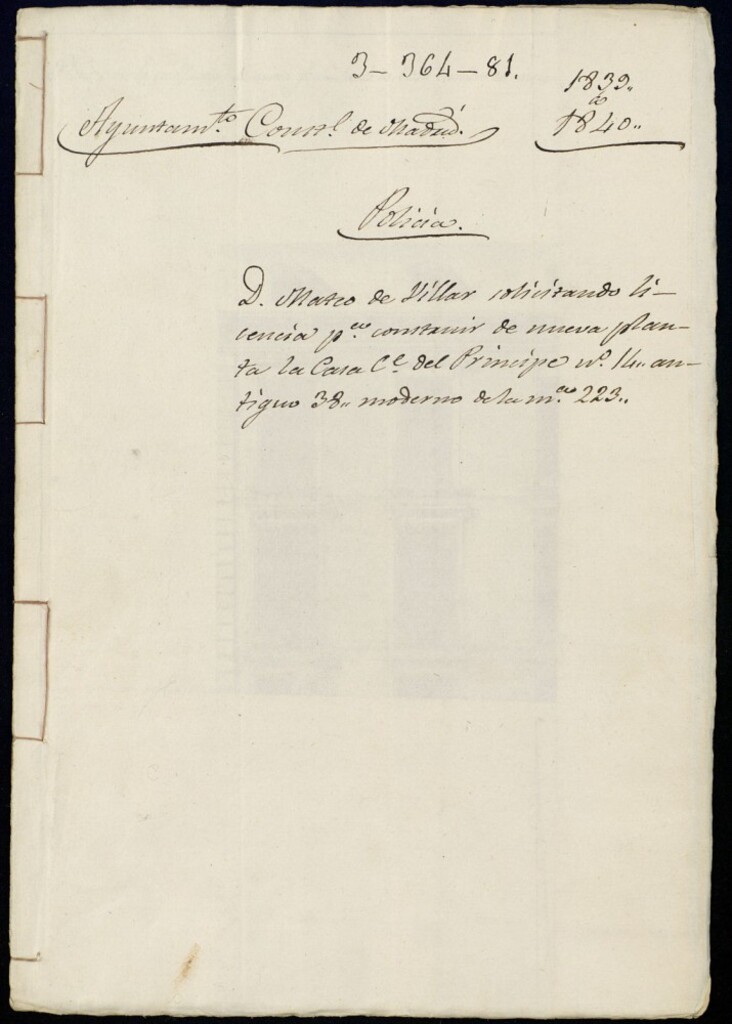 3- 364-81.
1839..
a
1840..
Ayuntam.to Const.l de Madrid.
Policia.
D. Mateo de Villar solicitando li-
cencia p.a construir de nueva plan-
ta la Casa C.e del Principe n.o 14.. an-
tiguo 38.. moderno de la m.a 223..